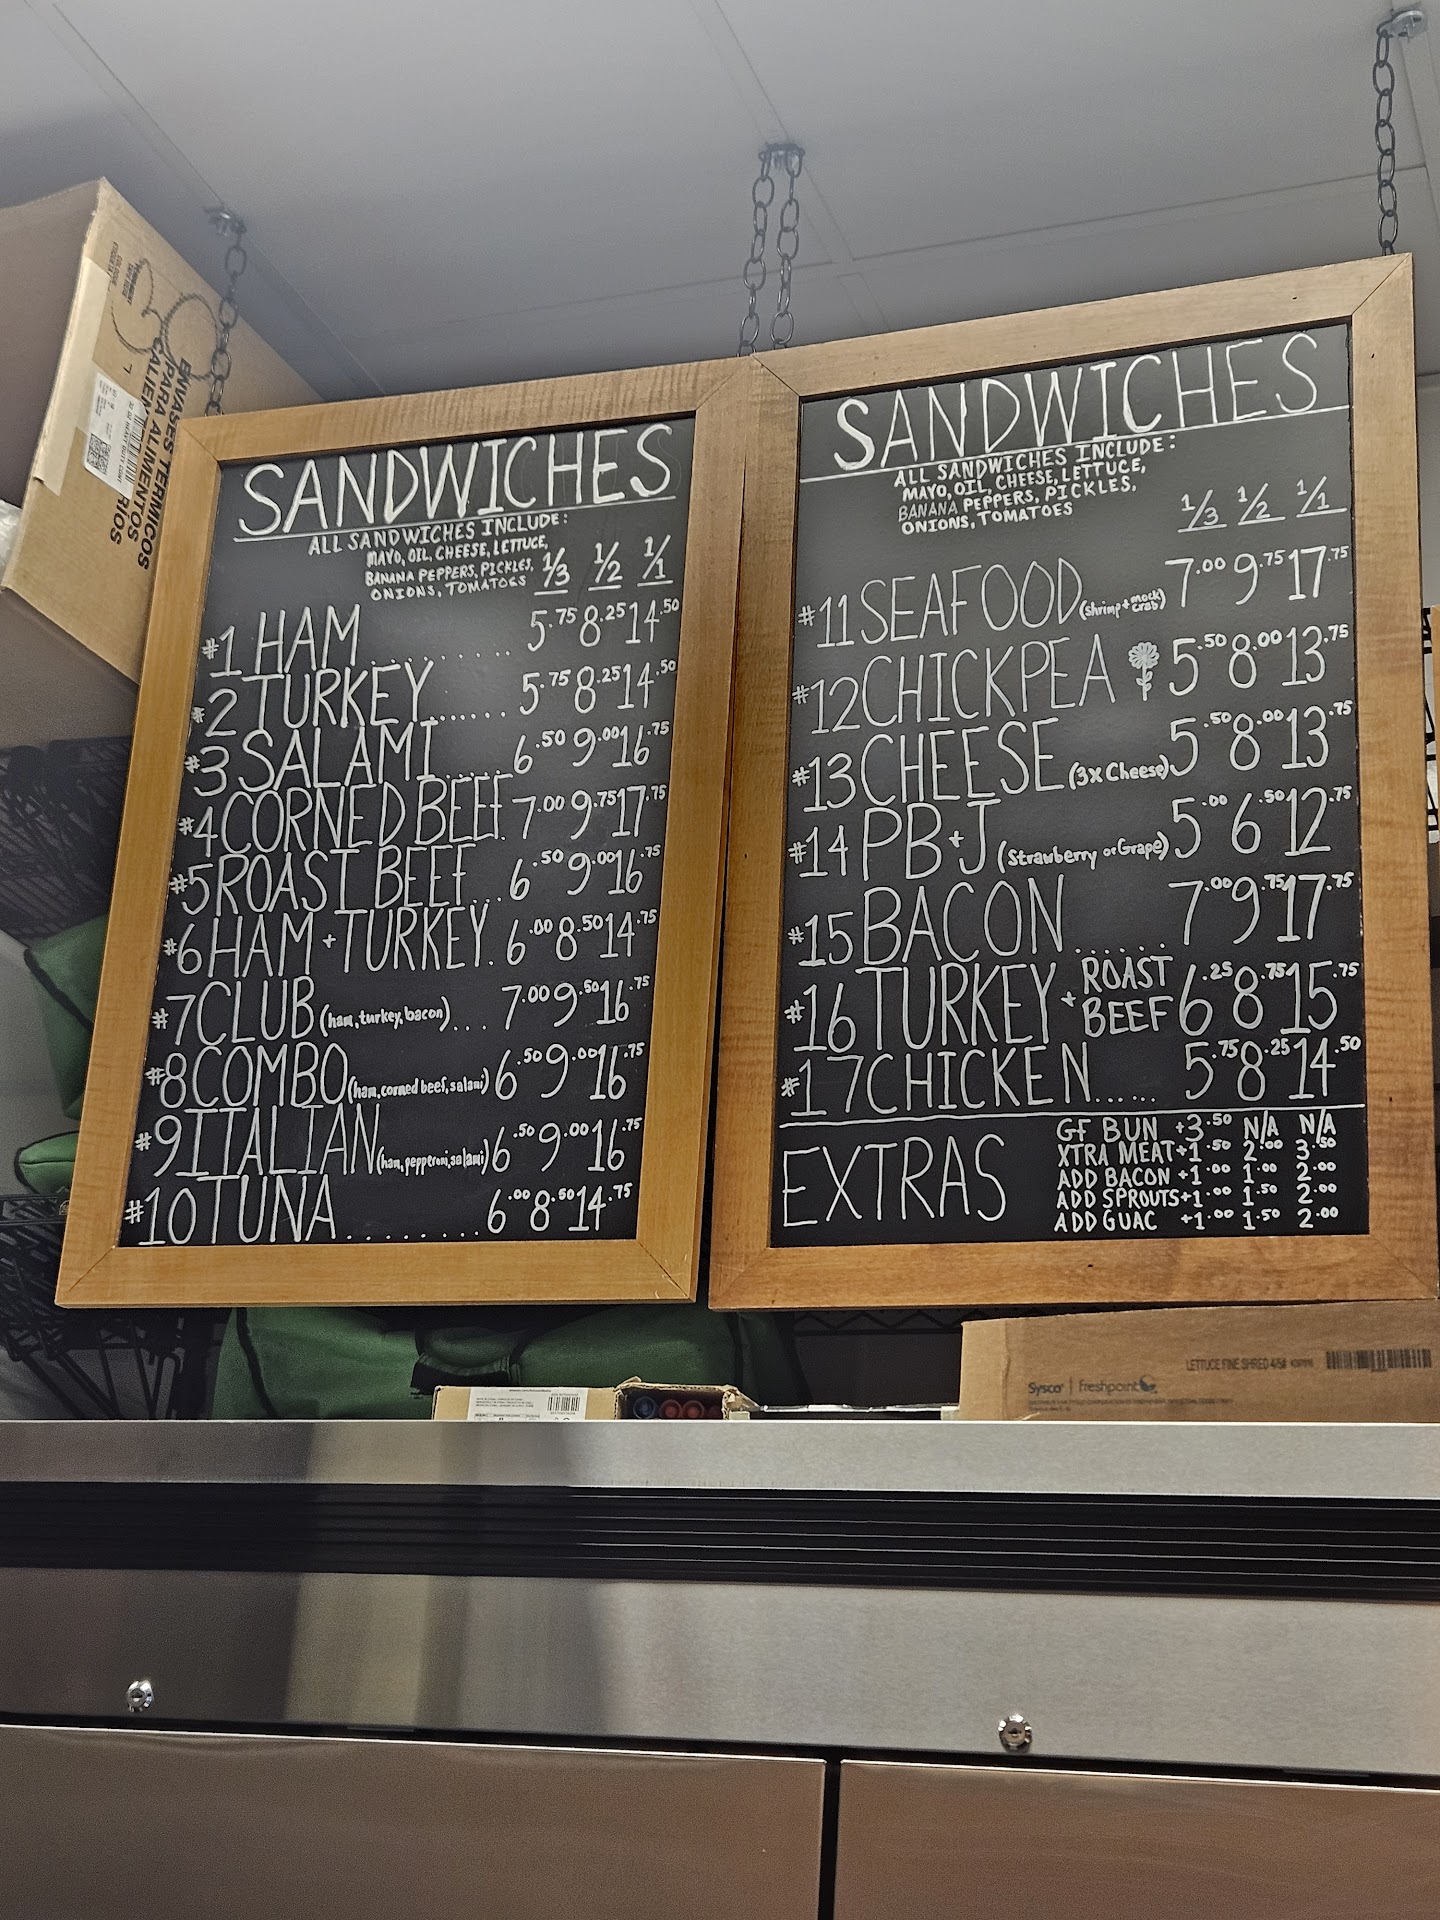 SANDWICHES
ALL SANDWICHES INCLUDE:
MAYO, OIL, CHEESE, LETTUCE,
BANANA PEPPERS, PICKLES,
ONIONS, TOMATOES
1/3 1/2 1/1
#1 HAM......... 5.75 8.25 14.50
#2 TURKEY...... 5.75 8.25 14.50
#3 SALAMI..... 6.50 9.00 16.75
#4 CORNED BEEF. 7.00 9.75 17.75
#5 ROAST BEEF... 6.50 9.00 16.75
#6 HAM + TURKEY. 6.00 8.50 14.75
#7 CLUB (ham, turkey, bacon)... 7.00 9.50 16.75
#8 COMBO (ham, corned beef, salami) 6.50 9.00 16.75
#9 ITALIAN (ham, pepperoni, salami) 6.50 9.00 16.75
#10 TUNA........ 6.00 8.50 14.75
SANDWICHES
ALL SANDWICHES INCLUDE:
MAYO, OIL, CHEESE, LETTUCE,
BANANA PEPPERS, PICKLES,
ONIONS, TOMATOES
1/3 1/2 1/1
#11 SEAFOOD (shrimp + mock crab) 7.00 9.75 17.75
#12 CHICKPEA 5.50 8.00 13.75
#13 CHEESE (3x Cheese) 5.50 8.00 13.75
#14 PB+J (Strawberry or Grape) 5.00 6.50 12.75
#15 BACON...... 7.00 9.75 17.75
#16 TURKEY + ROAST BEEF 6.25 8.75 15.75
#17 CHICKEN..... 5.75 8.25 14.50
EXTRAS
GF BUN +3.50 N/A N/A
XTRA MEAT +1.50 2.00 3.50
ADD BACON +1.00 1.00 2.00
ADD SPROUTS +1.00 1.50 2.00
ADD GUAC +1.00 1.50 2.00
ENVASES TERMICOS
PARA ALIMENTOS
CALIENTES
RÍOS
LETTUCE FINE SHRED 4/5#
Sysco | freshpoint